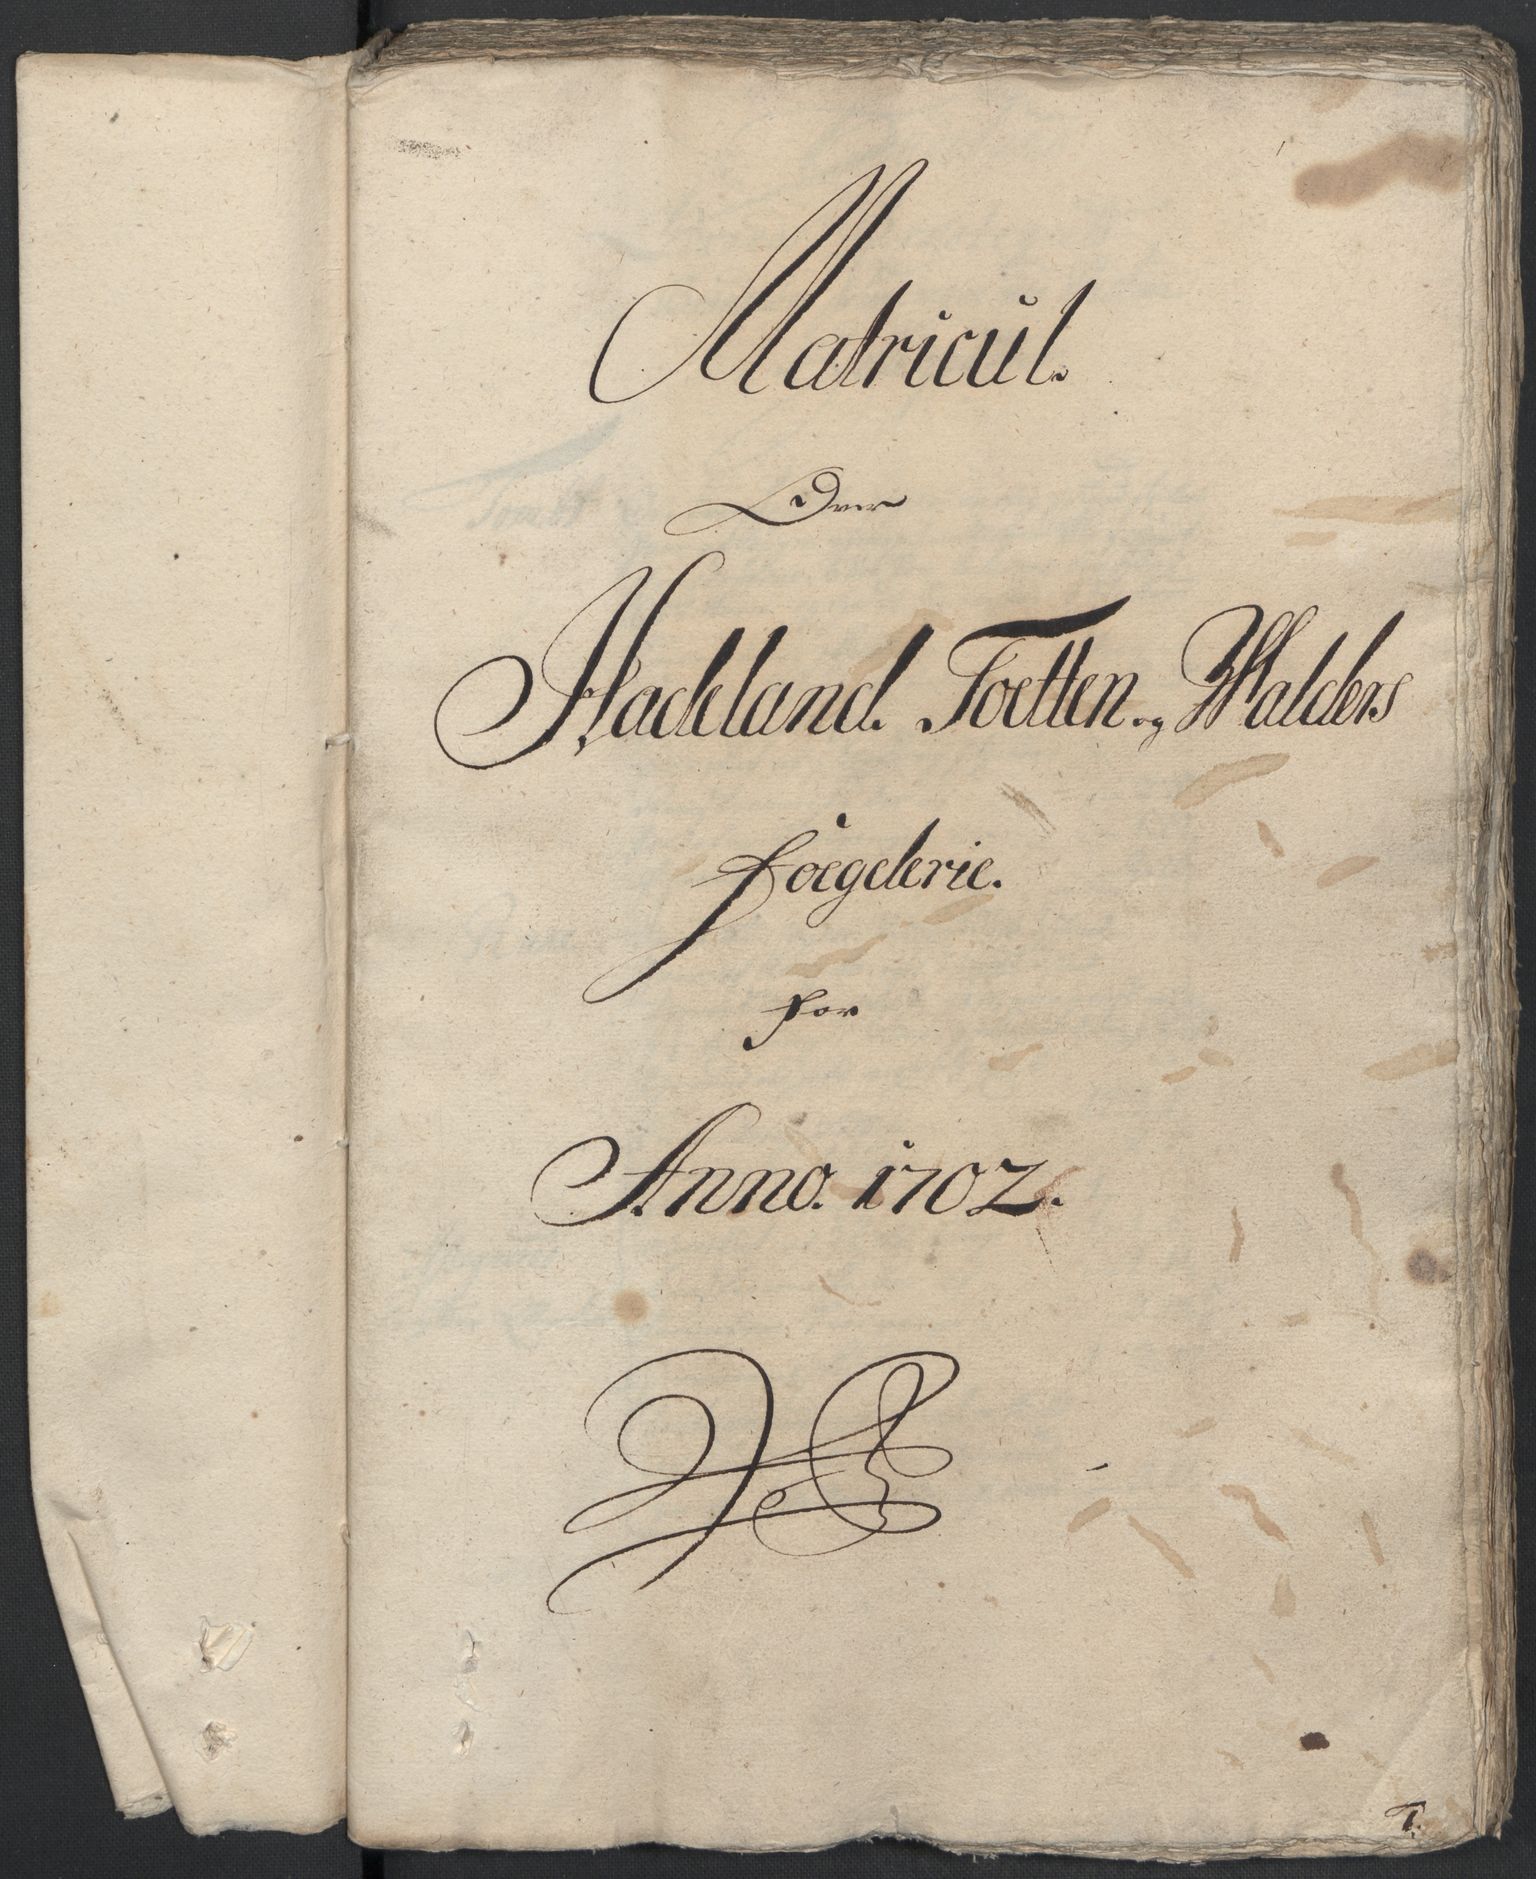 Matricul.
Over
Hadeland. Toetten og Walders
foegderie.
for
Anno. 1702.
1.